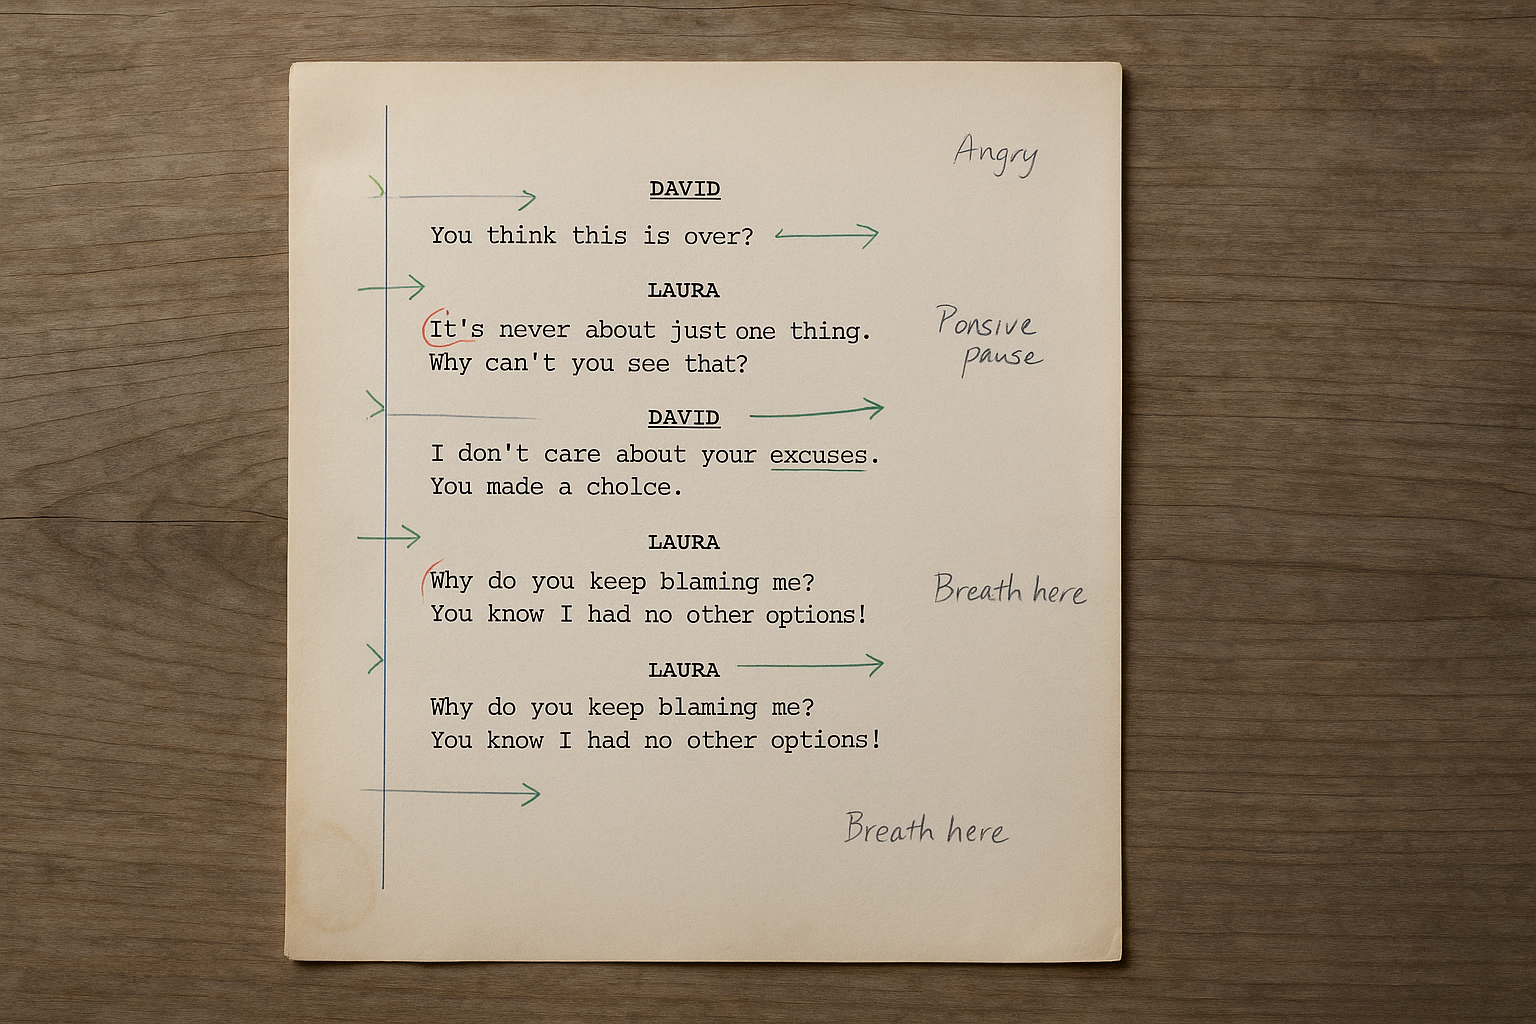 Angry
DAVID
You think this is over?
LAURA
It's never about just one thing.
Why can't you see that?
Ponsive
pause
DAVID
I don't care about your excuses.
You made a cholce.
LAURA
Why do you keep blaming me?
You know I had no other options!
Breath here
LAURA
Why do you keep blaming me?
You know I had no other options!
Breath here